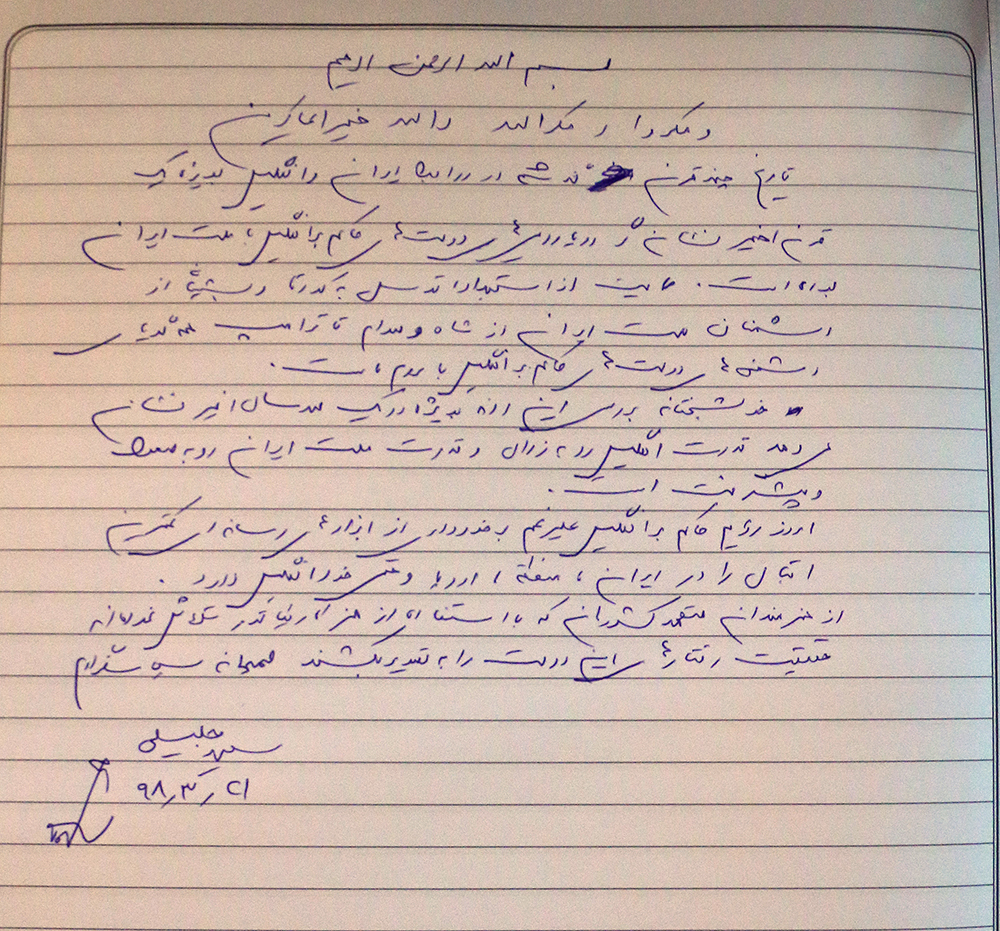 بسم الله الرحمن الرحیم
و مکروا و مکر الله والله خیر الماکرین
تاریخ چند قرن گذشته در روابط ایران و انگلیس بویژه یک
قرن اخیر نشان‌گر دورویی‌های دولت‌های حاکم بر انگلیس با ملت ایران
بوده است. حمایت از استبداد تا توسل به کودتا و پشتیبانی از
دشمنان ملت ایران از شاه و صدام تا ترامپ همه گویای
دشمنی‌های دولت‌های حاکم بر انگلیس با مردم ماست.
خوشبختانه بررسی این روند بویژه در یک صد سال اخیر نشان
می‌دهد قدرت انگلیس رو به زوال و قدرت ملت ایران رو به صعود
و پیشرفت است.
امروز رژیم حاکم بر انگلیس علیرغم برخورداری از ابزارهای رسانه‌ای کمترین
اقبال را در ایران، منطقه، اروپا و حتی خود انگلیس دارد.
از هنرمندان متعهد کشورمان که با استفاده از هنر کاریکاتور تلاش نموده‌اند
حقیقت رفتارهای این دولت را به تصویر بکشند صمیمانه سپاسگزارم
سعید جلیلی
۹۸٫۳٫۲۱